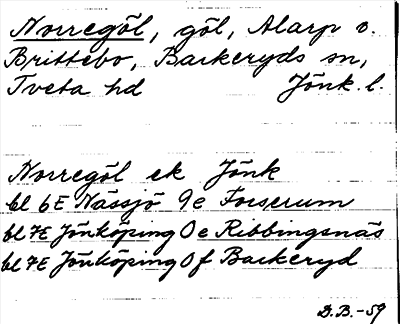 Norregöl, göl, Alarp o.
Brittebo, Barkeryds sn,
Tveta hd Jönk. l.
Norregöl ek Jönk
bl 6E Nässjö 9e Forserum
bl 7E Jönköping 0e Ribbingsnäs
bl 7E Jönköping 0f Barkeryd
D.B.-59